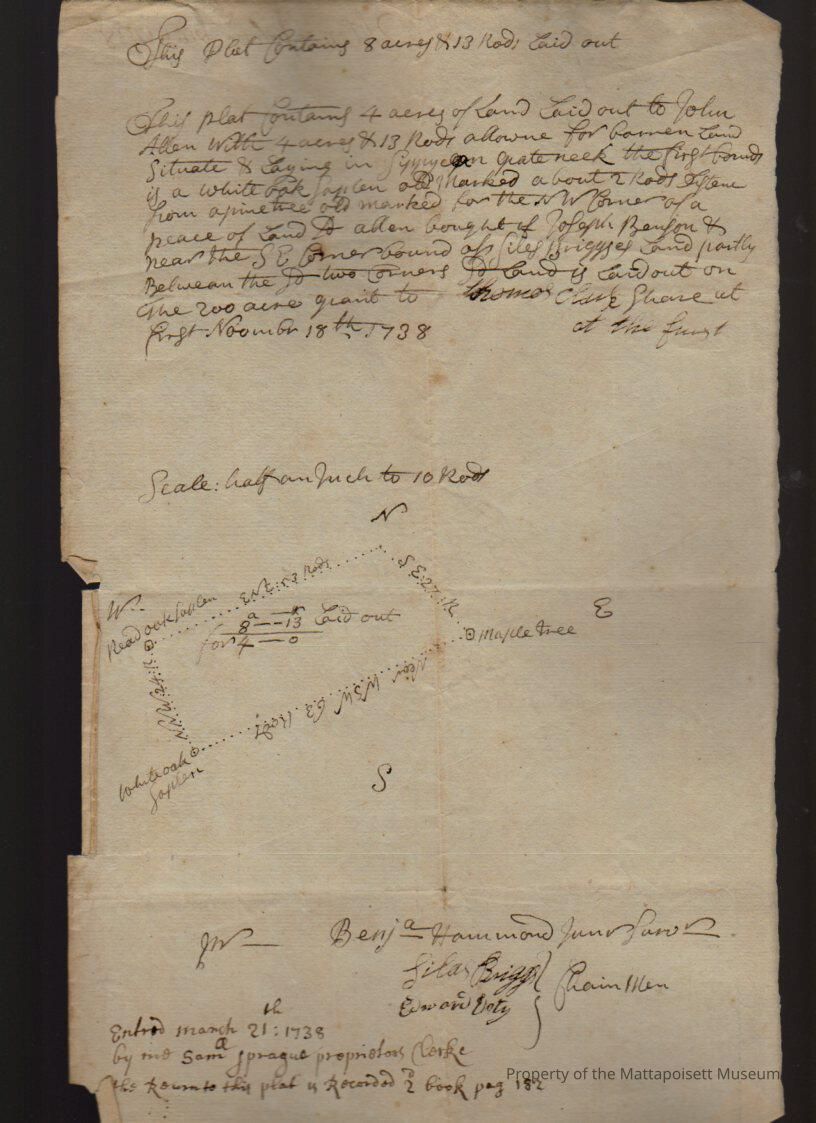 This Plat Contains 8 acres & 13 Rods Laid out
This plat Contains 4 acres of Land Laid out to John
Allen With 4 acres & 13 Rods allowne for barren Land
Situate & Laying in Sippycan grate neck the first bounds
is a white oak Saplen old Marked about 2 Rods
from a pinetree old marked for the N W Corner of a
peace of Land Sd allen bought of Joseph Benson &
near the S E Corner bound of Silas Briggses Land partly
Between the Sd two Corners Sd Land is Laid out on
The 200 acre grant to thomas Clark Share at
first Noombr 18th 1738 at the furst
Scale: half an Inch to 10 Rods
N
W
Read oak Saplen
E N E: 53 Rods
S E: 27: R
a R
8 -- 13 Laid out
for 4 -- 0
E
Maple tree
W S W 63 Rods
Whiteoak
Saplen
S
Pr Benja Hammond Junr Survor
Silas Briggs
Edward Doty
Chain Men
Entred march 21th: 1738
by me Samll Sprague proprietors Clerke
the Return to this plat is Recorded 2 book pag 182
Property of the Mattapoisett Museum